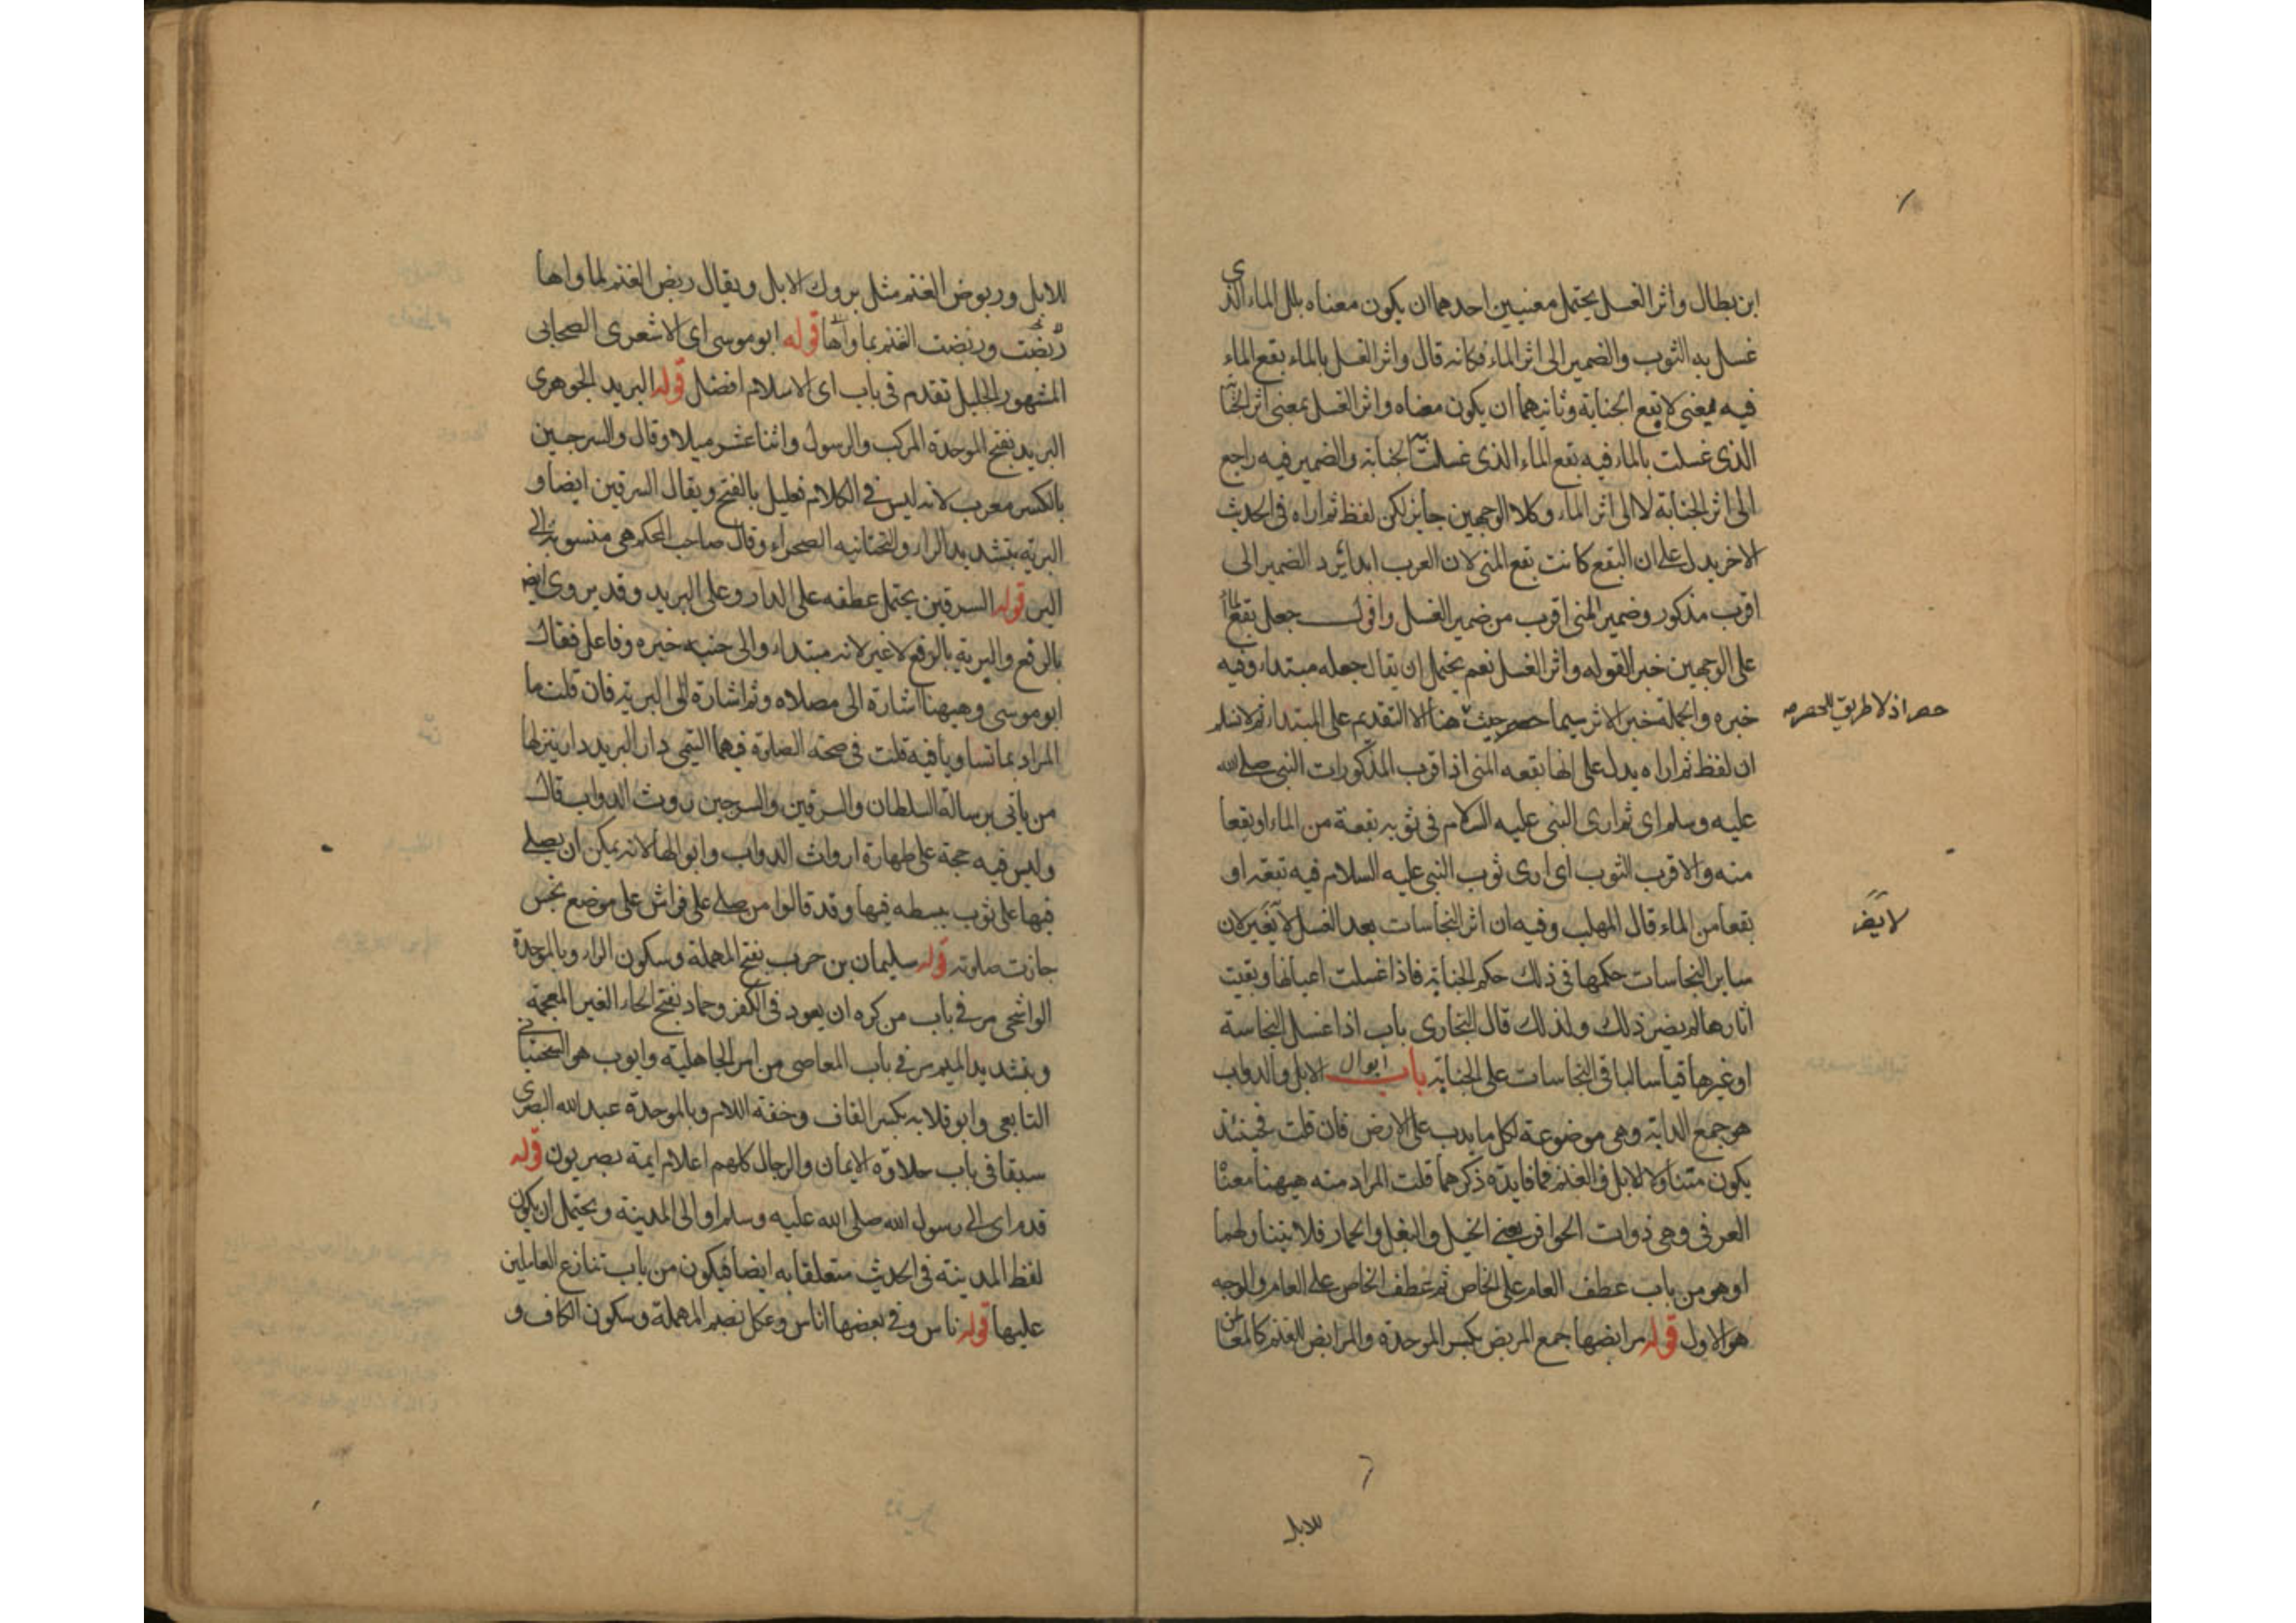 ابن بطال واثر الغسل يحتمل معنيين احدهما ان يكون معناه بلل الماء الذى
غسل به الثوب والضمير الى اثر الماء فكانه قال واثر الغسل بالماء بقع الماء
فيه يعنى لا بقع الجنابة وثانيهما ان يكون معناه واثر الغسل يعنى اثر الجنابة
الذى غسلت بالماء فيه بقع الماء الذى غسلت به الجنابة والضمير فيه راجع
الى اثر الجنابة لا الى اثر الماء وكلا الوجهين جايز لكن لفظ ثم اراه فى الحديث
الاخر يدل على ان البقع كانت بقع المنى لان العرب ابدا يرد الضمير الى
اقرب مذكور وضمير المنى اقرب من ضمير الغسل واقول جعل بقع الماء
على الوجهين خبرا لقوله واثر الغسل نعم يحتمل ان يقال جعله مبتداء وفيه
خبره والجملة خبر الاثر سيما حيث هنا الا التقديم على المبتداء ثم لا نسلم
حصر اذ لا طريق للحصر صه
ان لفظ ثم اراه يدل على انها بقعه المنى اذ اقرب المذكورات النبى صلى الله
عليه وسلم اى ثم ارى النبى عليه السلام فى ثوبه بقعة من الماء او بقعا
منه والاقرب الثوب اى ارى ثوب النبى عليه السلام فيه بقعة او
بقعا من الماء قال المهلب وفيه ان اثر النجاسات بعد الغسل لا يغير لان
لا يضر
ساير النجاسات حكمها فى ذلك حكم الجنابة فاذا غسلت اعيانها وبقيت
اثارها لم يضر ذلك ولذلك قال البخارى باب اذا غسل النجاسة
او غيرها قياسا لباقى النجاسات على الجنابة باب ابوال الابل والدواب
هو جمع الدابة وهى موضوعة لكل ما يدب على الارض فان قلت فحينئذ
يكون متناولا للابل والغنم فما فايدة ذكرهما قلت المراد منه هيهنا معناه
العرفى وهى ذوات الحوافر يعنى الخيل والبغل والحمار فلا يتناولهما
او هو من باب عطف العام على الخاص ثم عطف الخاص على العام والوجه
هو الاول قوله مرابضها جمع المربض بكسر الموحدة والمرابض للغنم كالمعاطن
للابل
للابل وربوض الغنم مثل بروك الابل ويقال ربض الغنم لماواها
ربضت وربضت الغنم بماواها قوله ابو موسى اى الاشعرى الصحابى
المشهور الجليل تقدم فى باب اى الاسلام افضل قوله البريد الجوهرى
البريد بفتح الموحدة المركب والرسول واثنا عشر ميلا وقال والسرجين
بالكسر معرب لانه ليس فى الكلام فعليل بالفتح ويقال السرقين ايضا و
البرية بتشديد الراء والتحتانيه الصحراء وقال صاحب المحكم هى منسوبة الى
البر قوله السرقين يحتمل عطفه على الدار وعلى البريد وقد يروى ايضا
بالرفع والبرية بالرفع لا غير لانه مبتداء والى جنبه خبره وفاعل فقال
ابو موسى وهيهنا اشارة الى مصلاه وثم اشارة الى البرية فان قلت ما
المراد بما تساويا فيه قلت فى صحة الصلوة فيهما التيمى دار البريد دار ينزلها
من ياتى برسالة السلطان والسرقين والسرجين روث الدواب قال
وليس فيه حجة على طهارة ارواث الدواب وابوالها لانه يمكن ان يصلى
فيها على ثوب بسطه فيها وقد قالوا من صلى على فراش على موضع نجس
جازت صلوته قوله سليمان بن حرب بفتح المهملة وسكون الراء وبالموحدة
الواشحى مر فى باب من كره ان يعود فى الكفر وحماد بفتح الحاء الغير المعجمة
وبتشديد الميم مر فى باب المعاصى من امر الجاهلية وايوب هو السختيانى
التابعى وابو قلابه بكسر القاف وخفة اللام وبالموحدة عبد الله البصرى
سبقا فى باب حلاوة الايمان والرجال كلهم اعلام ايمة بصريون قوله
قدم اى الى رسول الله صلى الله عليه وسلم او الى المدينة ويحتمل ان يكون
لفظ المدينة فى الحديث متعلقا به ايضا فيكون من باب تنازع العاملين
عليها قوله ناس وفى بعضها اناس وعكل بضم المهملة وسكون الكاف و